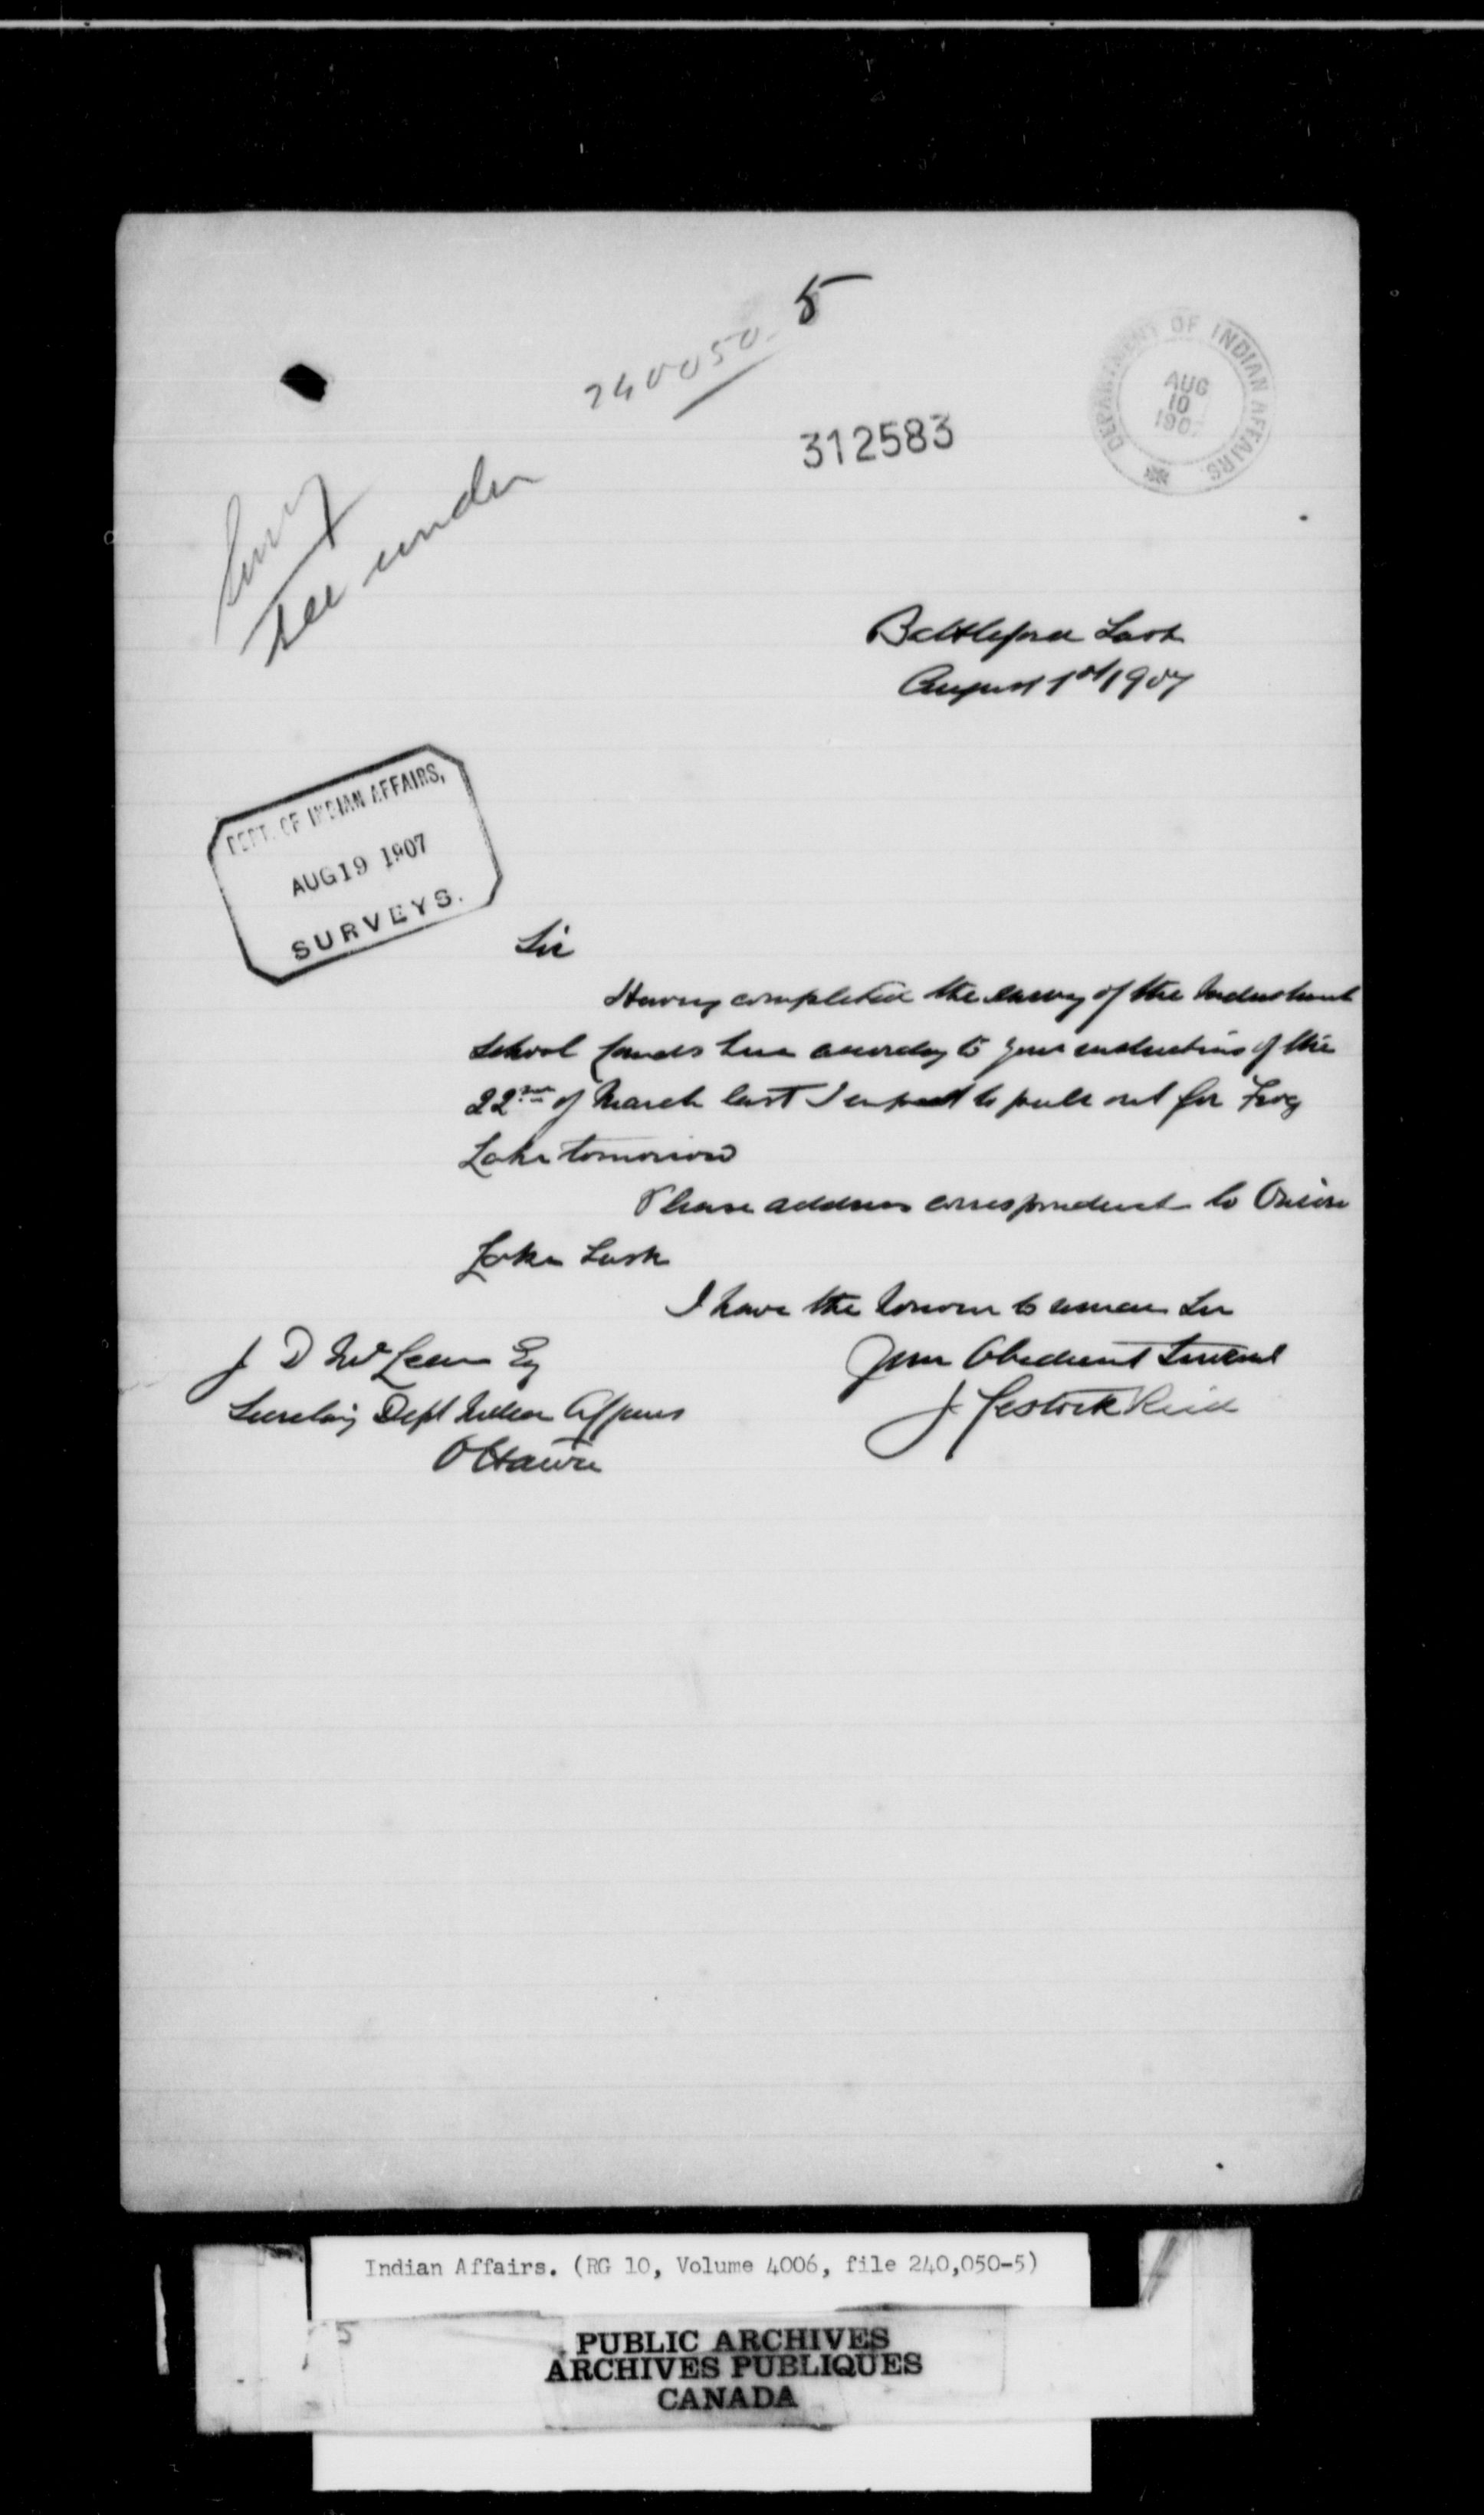 5
240050-
312583
DEPARTMENT OF INDIAN AFFAIRS.
AUG
10
190
Surv
See under
Battleford Sask
August 1st/1907
DEPT. OF INDIAN AFFAIRS,
AUG 19 1907
SURVEYS.
Sir
Having completed the survey of the Industrial
School lands here according to your instructions of the
22nd of March last I expect to pull out for Frog
Lake tomorrow
Please address correspondence to Onion
Lake Sask
I have the honour to remain Sir
Your Obedient Servant
J Lestock Reid
J D McLean Esq
Secretary Dept Indian Affairs
Ottawa
Indian Affairs. (RG 10, Volume 4006, file 240,050-5)
5
PUBLIC ARCHIVES
ARCHIVES PUBLIQUES
CANADA